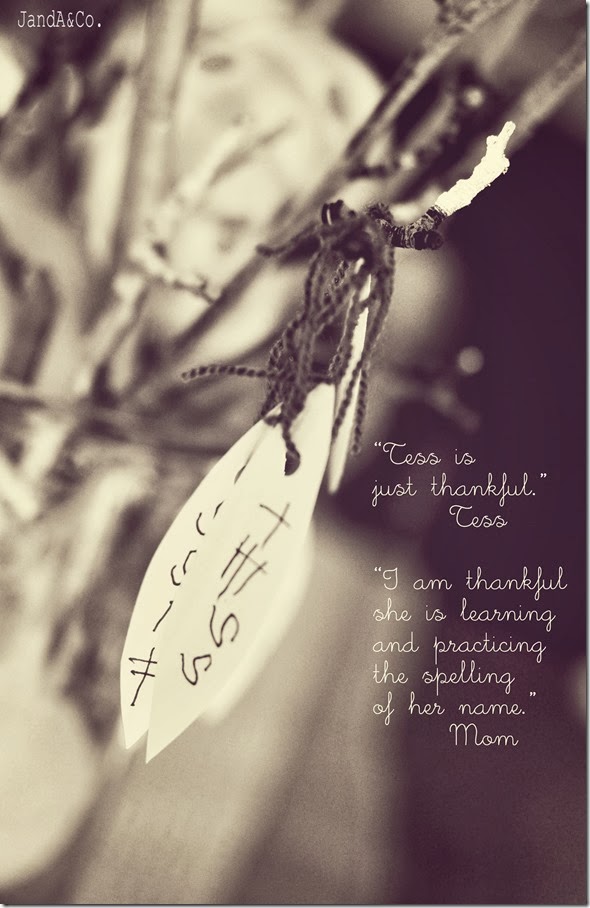 JandA&Co.
t E S S
“Tess is
just thankful.”
Tess
“I am thankful
she is learning
and practicing
the spelling
of her name.”
Mom